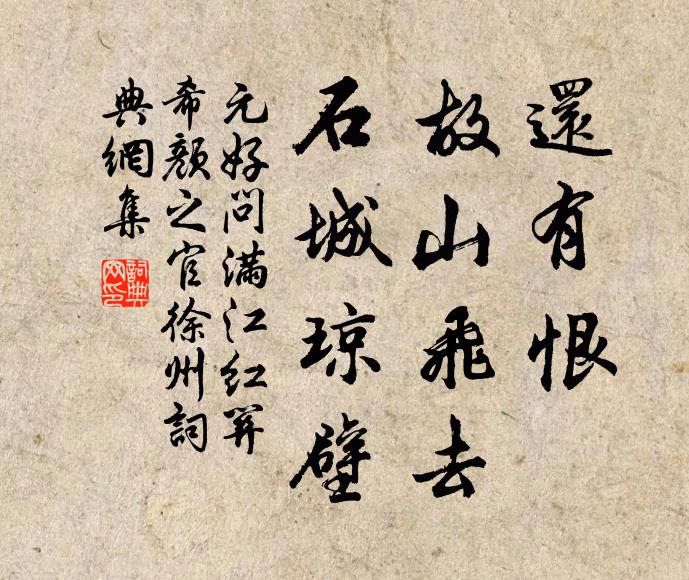 還有恨
故山飛去
石城琼壁
元好問滿江红笄
希顏之官徐州詞
典網集
詞典
网印